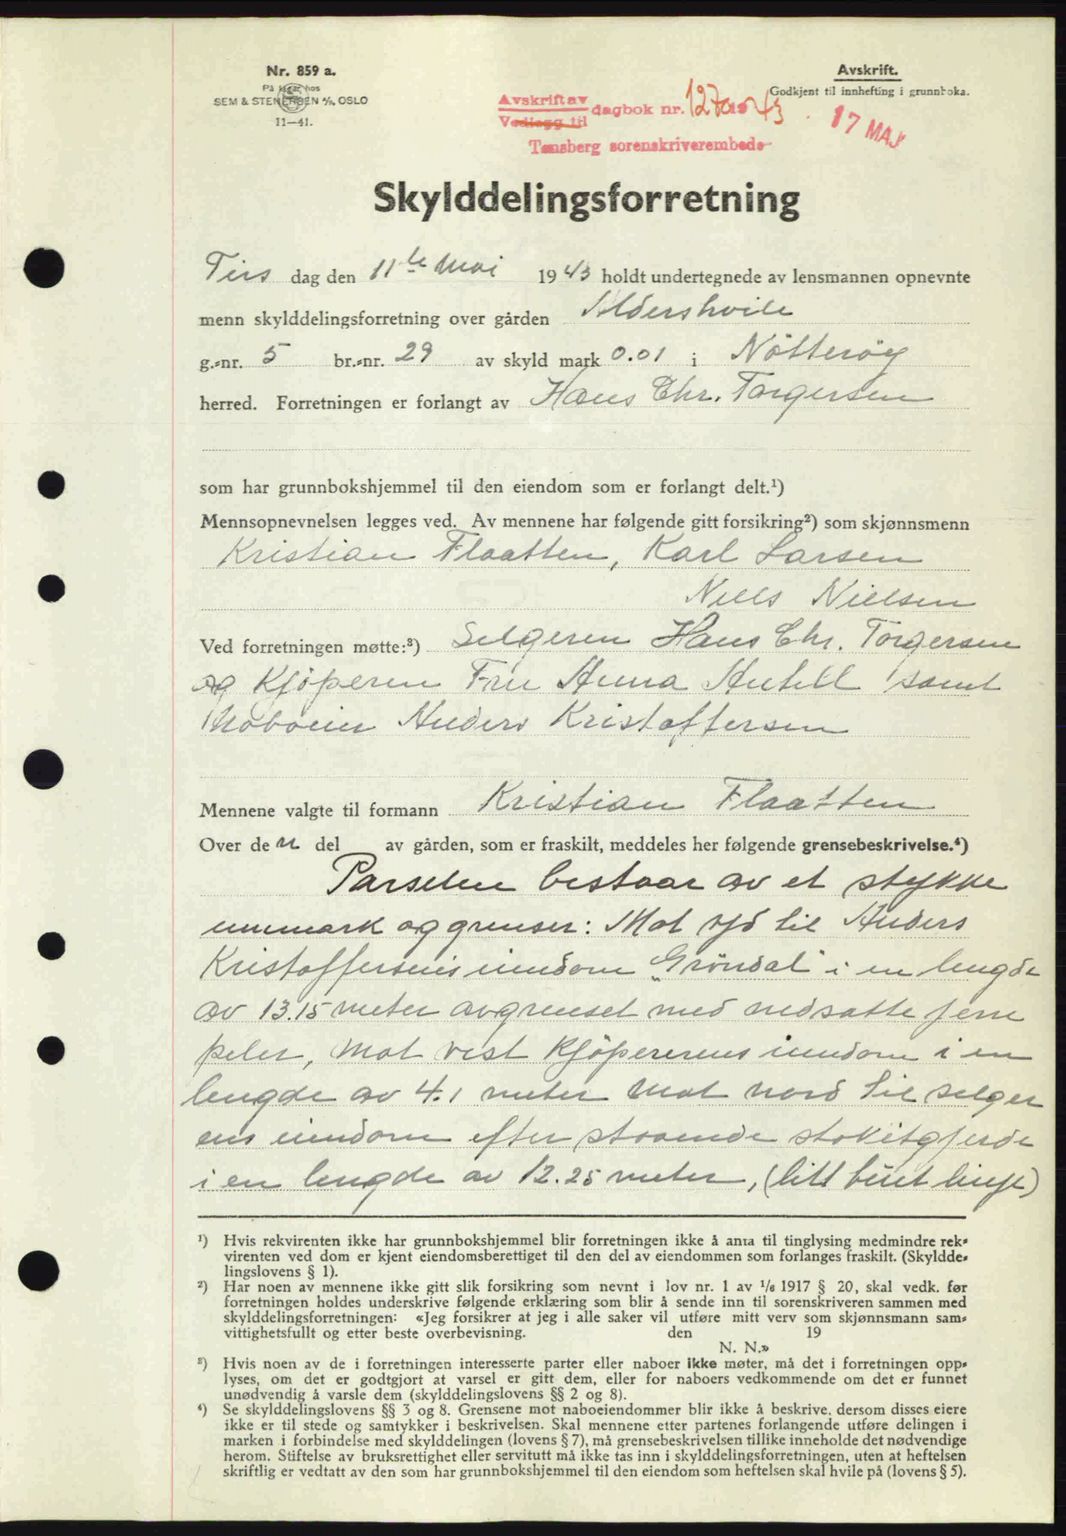 Nr. 859 a.
På lager hos
SEM & STENERSEN A/S, OSLO
11—41.
Avskrift.
Godkjent til innhefting i grunnboka.
Avskrift av
Vedlegg til
dagbok nr. 1270 1943
Tønsberg sorenskriverembede
17 MAI
Skylddelingsforretning
Tirs dag den 11te Mai 1943 holdt undertegnede av lensmannen opnevnte
menn skylddelingsforretning over gården Aldershvile
g.-nr. 5 br.-nr. 29 av skyld mark 0.01 i Nötteröy
herred. Forretningen er forlangt av Hans Chr. Torgersen
som har grunnbokshjemmel til den eiendom som er forlangt delt.¹)
Mennsopnevnelsen legges ved. Av mennene har følgende gitt forsikring²) som skjønnsmenn
Kristian Flaatten, Karl Larsen
Niels Nielsen
Ved forretningen møtte:³) Selgeren Hans Chr. Torgersen
og Kjöperen Fru Anna samt
Naboeier Anders Kristoffersen
Mennene valgte til formann Kristian Flaatten
Over den del av gården, som er fraskilt, meddeles her følgende grensebeskrivelse.⁴)
Parselen bestaar av et stykke
unnmark og grenser: Mot syd til Anders
Kristoffersens eiendom "Gröndal" i en lengde
av 13.15 meter avgrenset med nedsatte jern
peler, Mot vest Kjöperens eiendom i en
lengde av 4.1 meter Mot nord til selger
ens eiendom efter staaende stakitgjerde
i en lengde av 12.25 meter, (litt buet linje)
¹) Hvis rekvirenten ikke har grunnbokshjemmel blir forretningen ikke å anta til tinglysing medmindre rek-
virenten ved dom er kjent eiendomsberettiget til den del av eiendommen som forlanges fraskilt. (Skyldde-
lingslovens § 1).
²) Har noen av mennene ikke gitt slik forsikring som nevnt i lov nr. 1 av ¹/₆ 1917 § 20, skal vedk. før
forretningen holdes underskrive følgende erklæring som blir å sende inn til sorenskriveren sammen med
skylddelingsforretningen: «Jeg forsikrer at jeg i alle saker vil utføre mitt verv som skjønnsmann sam-
vittighetsfullt og etter beste overbevisning. den 19
N. N.»
³) Hvis noen av de i forretningen interesserte parter eller naboer ikke møter, må det i forretningen opp-
lyses, om det er godtgjort at varsel er gitt dem, eller for naboers vedkommende om det er funnet
unødvendig å varsle dem (skylddelingslovens §§ 2 og 8).
⁴) Se skylddelingslovens §§ 3 og 8. Grensene mot naboeiendommer blir ikke å beskrive, dersom disses eiere
ikke er til stede og samtykker i beskrivelsen. Skal mennene etter partenes forlangende utføre delingen i
marken i forbindelse med skylddelingen (lovens § 7), må grensebeskrivelsen tillike inneholde det nødvendige
herom. Stiftelse av bruksrettighet eller servitutt må ikke tas inn i skylddelingsforretningen, uten at heftelsen
skriftlig er vedtatt av den som har grunnbokshjemmel til den eiendom som heftelsen skal hvile på (lovens § 5).